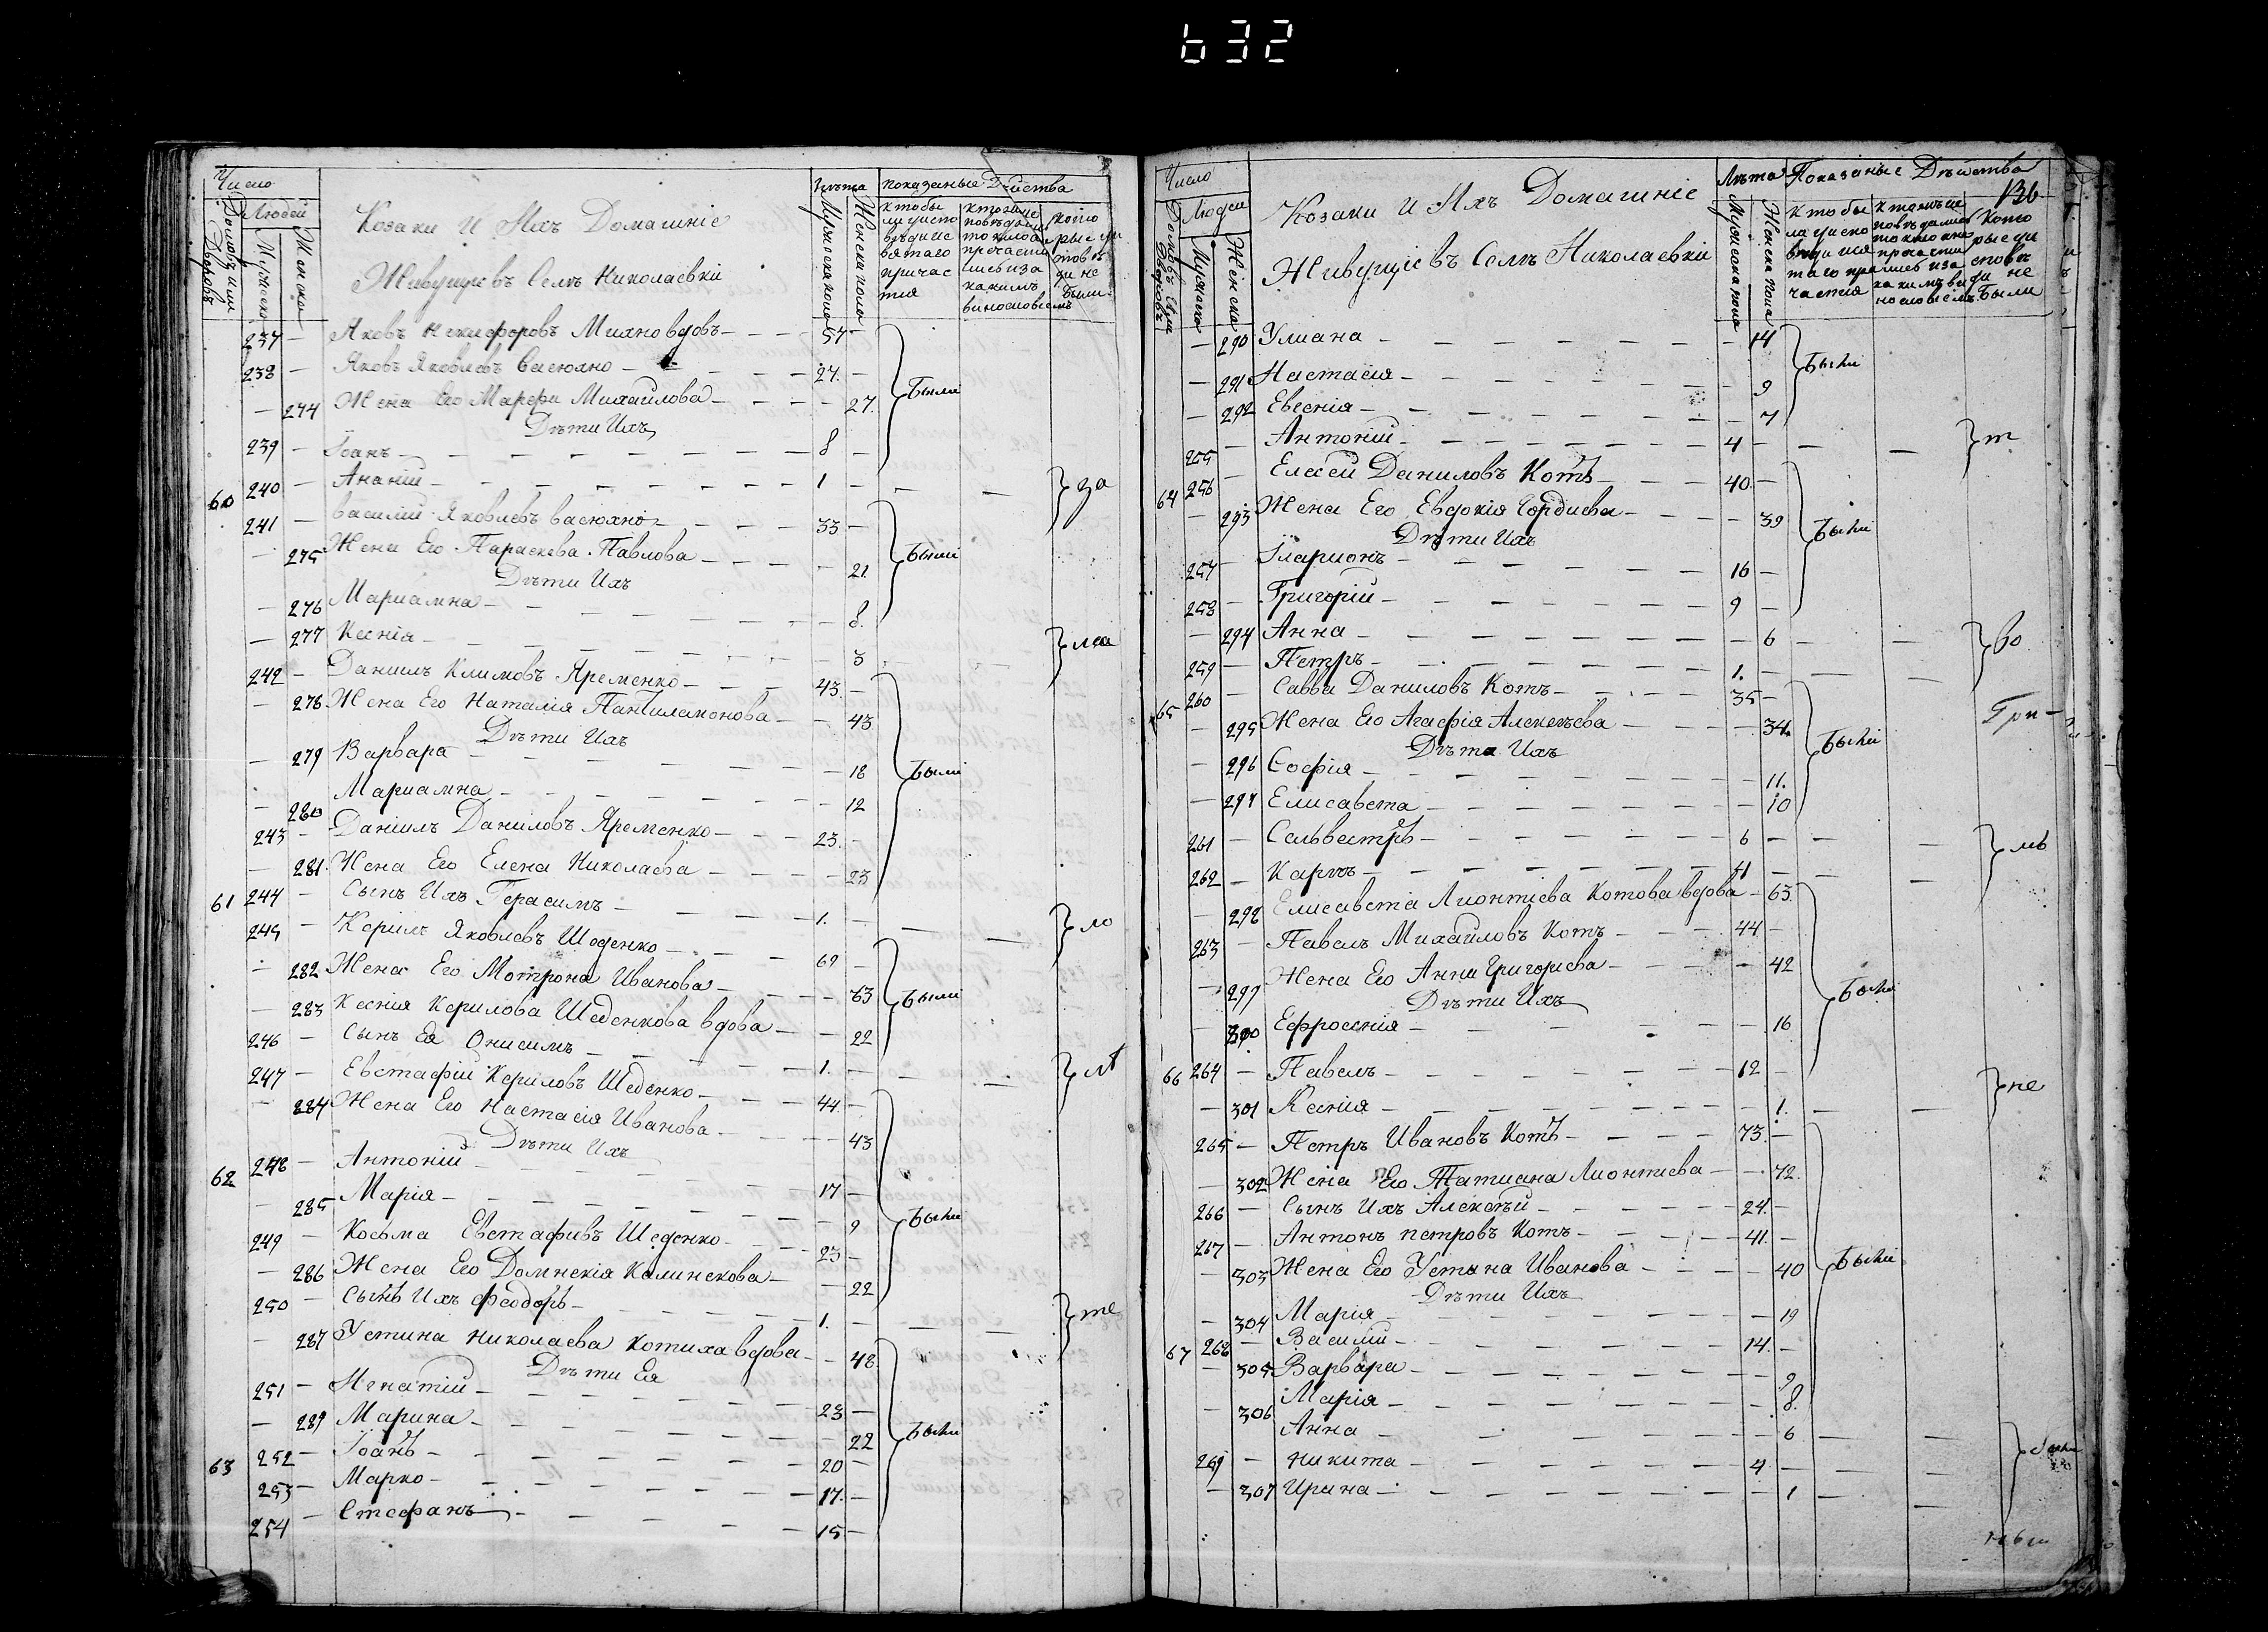 632
Число
Людей
Домовъ или Дворовъ
Мужеска
Женска
Козаки И Ихъ Домашніе
Живущіе въ Селѣ Николаевки
Лѣта
Мужеска пола
Женска пола
показаные Дѣйства
237 — Яковъ Никифоровъ Михно вдовъ — 57 —
238 — Яковъ Яковлевъ Васюхно — 27. —
— 274 Жена Его Марфа Михайлова — — 27.
Были
Дѣти Ихъ
239 — Іоанъ — 8 —
240 — Ананій — 1 — — —
за
60
241 — Василій Яковлевъ Васюхно — 33 —
— 275 Жена Его Параскева Павлова — — 21.
Были
Дѣти Ихъ
— 276 Мариамна — — 8.
— 277 Ксенія — — 3
242 — Даниилъ Климовъ Яременко — 43. —
— 278 Жена Его Наталія Пантилимонова — — 43
Дѣти Ихъ
— 279 Варвара — — 18
Были
— 280 Мариамна — — 12
243 — Даніилъ Даниловъ Яременко — 23. —
— 281. Жена Его Елена Николаева — — 23
61 244 — Сынъ Ихъ Герасимъ — 1. — — —
ло
245 — Кирилъ Яковлевъ Шеденко — 69 —
— 282 Жена Его Мотрона Иванова — — 63
— 283 Ксенія Кирилова Шеденкова вдова — — 22
Были
246 — Сынъ Ея Онисимъ — 1. — — —
247 — Евстафій Кириловъ Шеденко — 44. —
— 284 Жена Его Настасія Иванова — — 43
Дѣти Ихъ
62 248 — Антоній — 17 —
— 285 Марія — — 9
Были
249 — Косьма Евстафивъ Шеденко — 23 —
— 286 Жена Его Домнекія Калинекова — — 22
250 — Сынъ Ихъ Феодоръ — 1. — — —
те
— 287 Устина Николаева Котиха вдова — — 48.
Дѣти Ея
251 — Игнатій — 23 —
— 289 Марина — — 22
Были
63 252 — Іоанъ — 20 —
253 — Марко — 17. —
254 — Стефанъ — 15 —
Число
Людей
Домовъ или Дворовъ
Мужеска
Женска
Козаки И Ихъ Домашніе
Живущіе въ Селѣ Николаевки
Лѣта
Мужеска пола
Женска пола
Показаные Дѣйства
136
— 290 Улиана — — 14
Были
— 291 Настасія — — 9
— 292 Евгенія — — 7
255 — Антоній — 4 — — —
т
64 256 — Елисей Даниловъ Котъ — 40 —
— 293 Жена Его Евдокія Гордиева — — 39
Были
Дѣти Ихъ
257 — Іларионъ — 16 —
258 — Григорій — 9 —
— 294 Анна — — 6 — —
во
259 — Петръ — 1. — — —
65 260 — Савва Даниловъ Котъ — 35 —
Гри —
— 295 Жена Его Агафія Алексѣева — — 34.
Были
Дѣти Ихъ
— 296 Софія — — 11.
— 297 Елисавета — — 10
261 — Сельвестръ — 6 — — —
262 — Карпъ — 41 — — —
— 298 Елисавета Лионтіева Котова вдова — 63.
263 — Павелъ Михайловъ Котъ — 44 —
— 299 Жена Его Анна Григориева — — 42
Были
Дѣти Ихъ
— 300 Ефросинія — — 16
66 264 — Павелъ — 12 —
не
— 301 Ксенія — — 1. — —
265 — Петръ Ивановъ Котъ — 73. —
— 302 Жена Его Татиана Лионтиева — — 72.
266 — Сынъ Ихъ Алексѣй — 24. —
267 — Антонъ Петровъ Котъ — 41. —
— 303 Жена Его Устина Иванова — — 40
Были
Дѣти Ихъ
— 304 Марія — — 19
67 268 — Василій — 14. —
— 305 Варвара — — 9
— 306 Марія — — 8.
Анна — — 6 — —
269 — Никита — 4 — — —
— 307 Ирина — — 1 — —